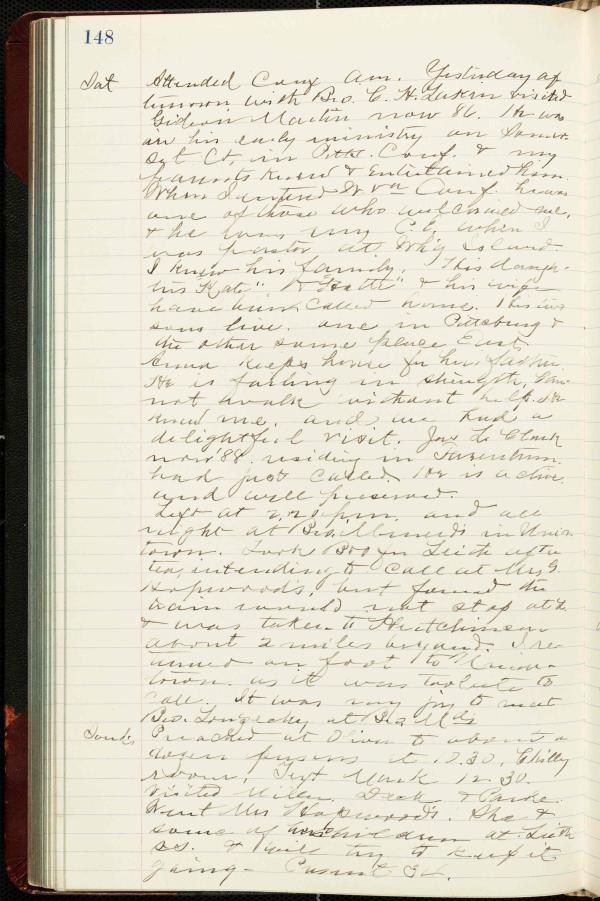 148
Sat Attended Conf a.m. Yesterday af
ternoon with Bro. C. H. visited
Gideon Martin now 86. He was
in his early ministry on Somer-
set Ct. in Pitts. Conf. & my
parents knew & entertained him.
When I entered W Va Conf. he was
one of those who welcomed me,
& he was my P.E. when I
was pastor at Island
I knew his family. His daugh-
ters "Kate" & "Hattie" & his wife
have been called home. His two
sons live one in Pittsburg &
the other some place East
Anna keeps house for her father
He is failing in strength, can
not walk without help. He
knew me, and we had a
delightful visit. Jas. L. Clark
now '88 residing in
had just called. He is active
and well preserved.
Left at 2,20 p.m. and all
night at Bro. in Union
town. Took for Leith after
tea, intending to call at Mrs G.
Hopwood's, but found the
train would not stop at L.
& was taken to Hutchinson
about 2 miles beyond. I re
turned on foot to Union-
town as it was too late to
call. It was very joy to meet
Bro. Longacky at Bro
Sund. Preached at Oliver to about a
dozen persons at 10.30. Chilly
room. Text Mark 12.30.
Visited Miller, Deck & Parke.
Went Mrs Hopwood's. She &
some of children at Leith
SS. & will try to keep it
going— Present 34.